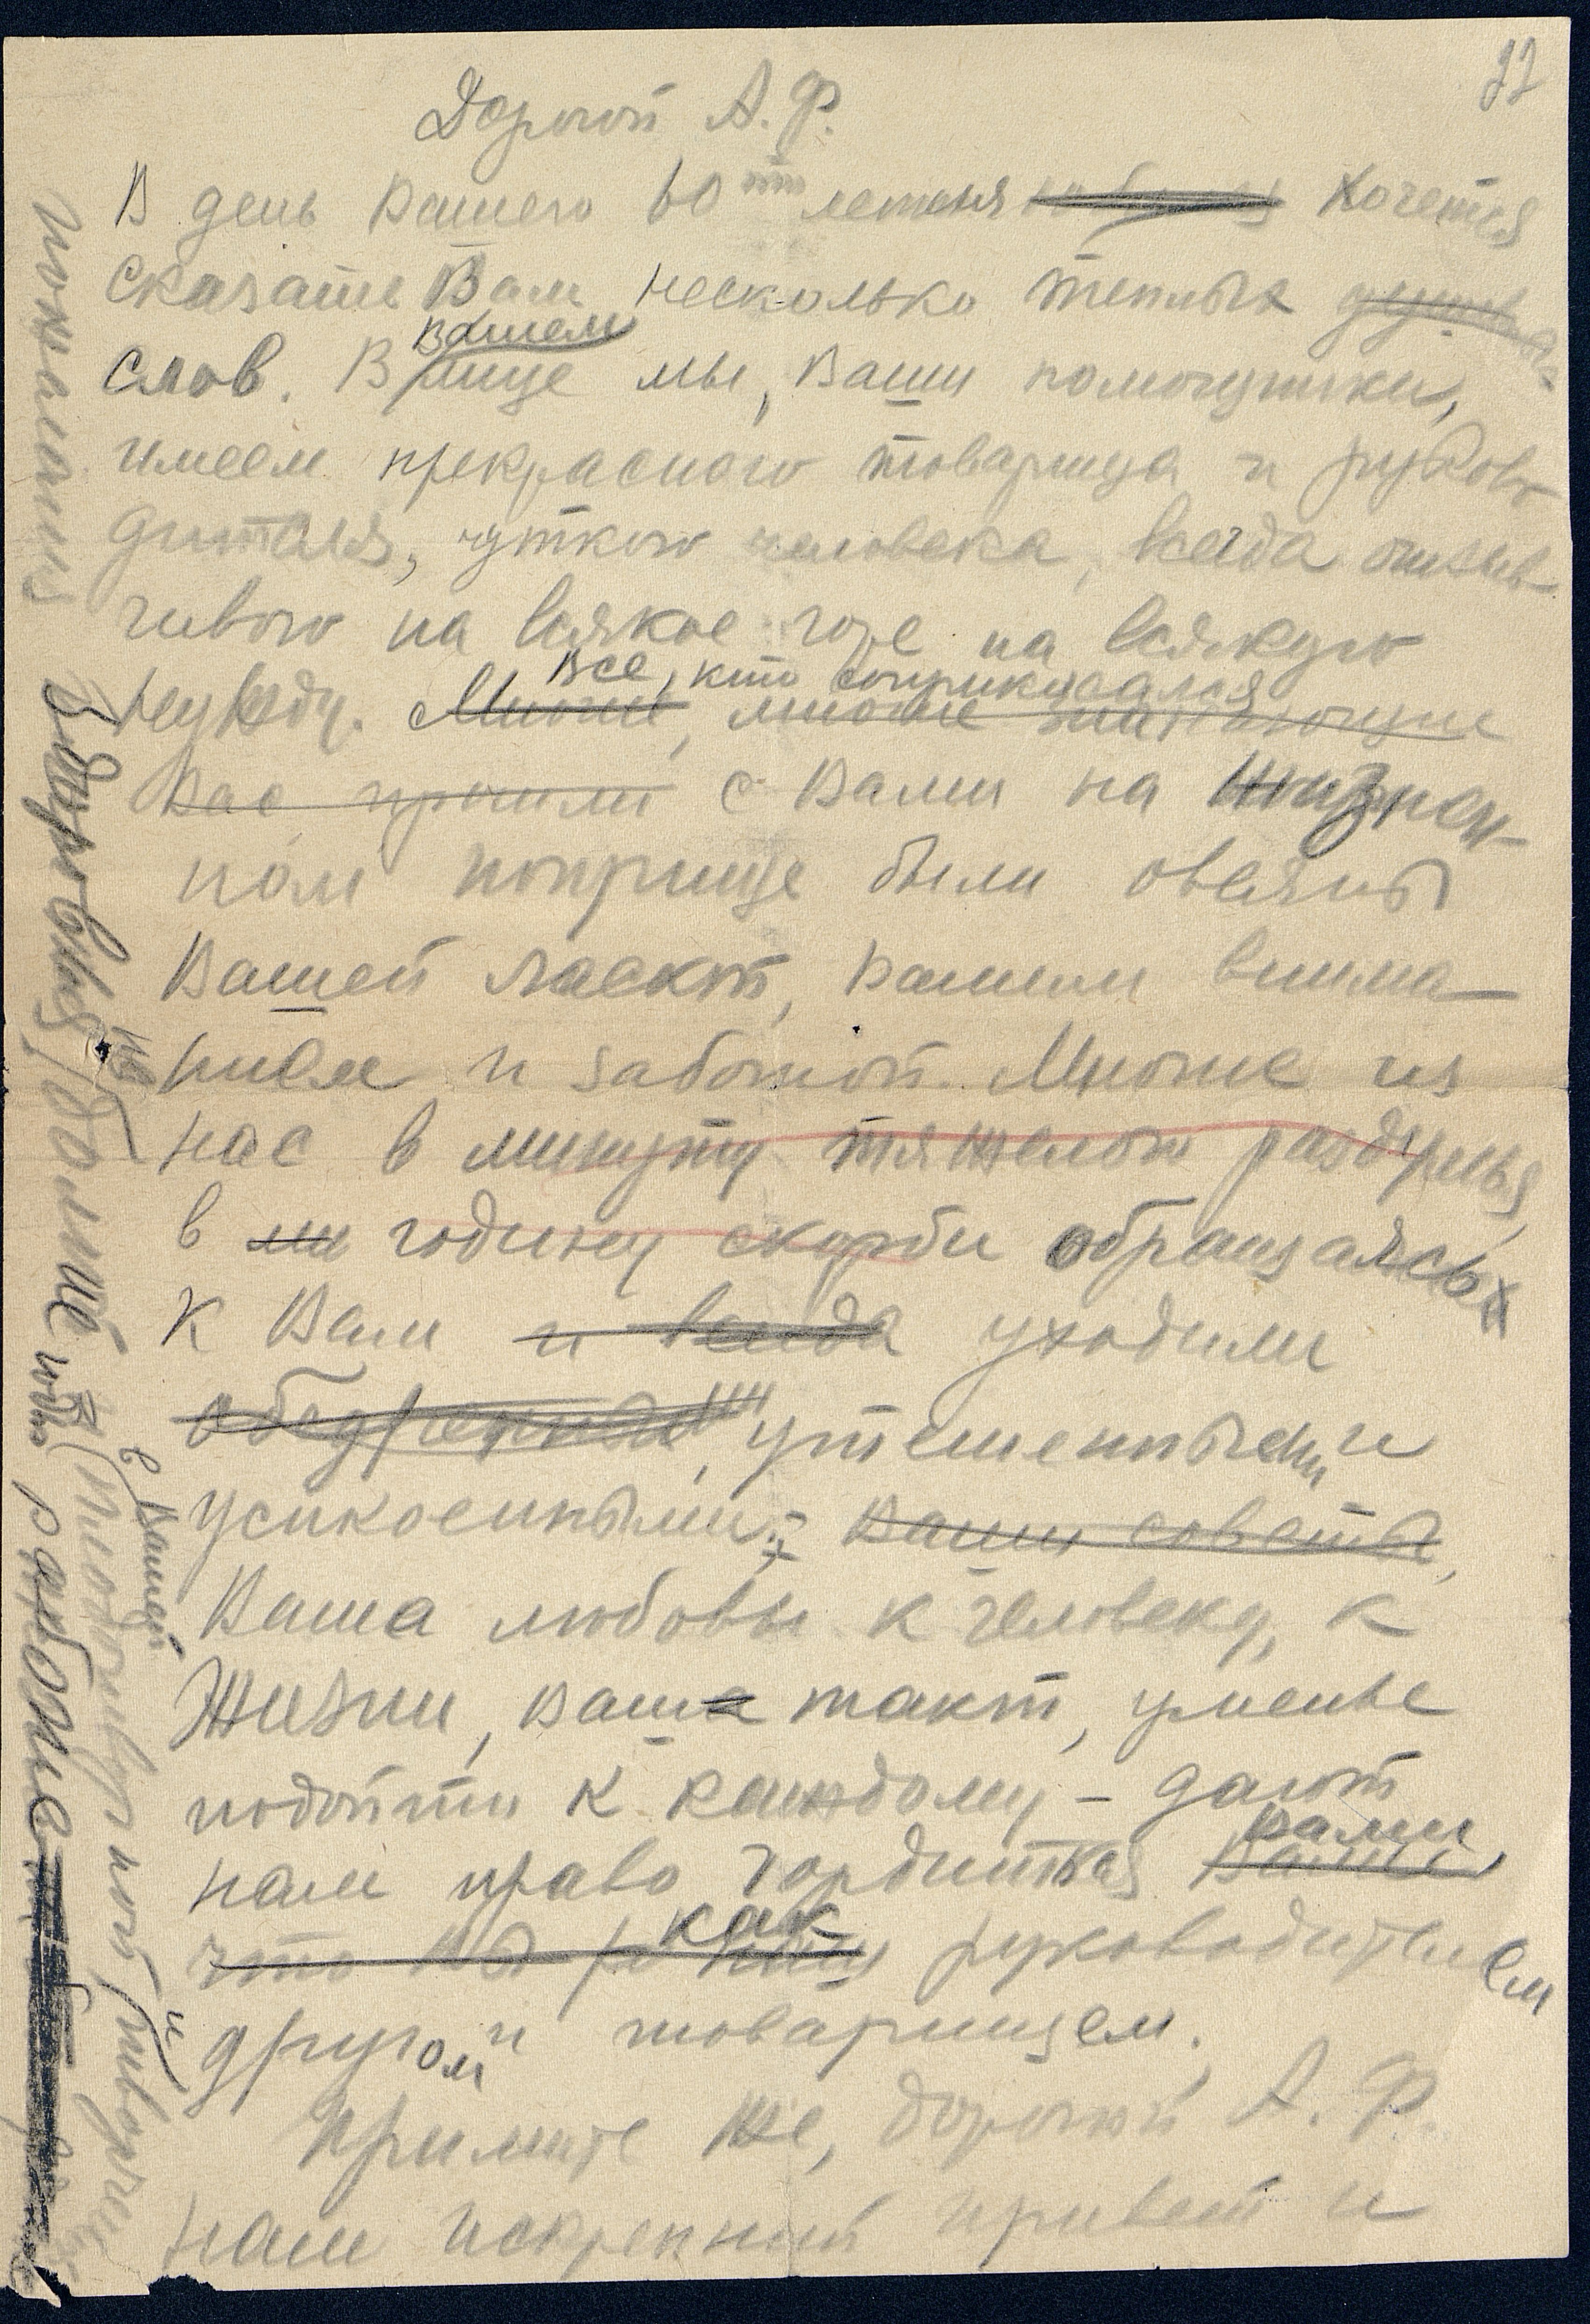 Дорогой А. Ф.
В день Вашего 60ти летия хочется
сказать Вам несколько теплых
слов. В Вашем лице мы, Ваши помощники,
имеем прекрасного товарища и руково-
дителя, чуткого человека, всегда отзыв-
чивого на всякое горе на всякую
нужду. Многие, многие
Все, кто соприкасался
Вас прошли с Вами на жизнен-
ном поприще были овеяны
Вашей лаской, Вашим внима-
нием и заботой. Многие из
нас в минуту тяжелого раздумья,
в ми годину скорби обращаясь
к Вам и всегда уходили
ободренными, утешенными и
успокоенными; Ваши советы,
Ваша любовь к человеку, к
жизни, Ваша такт, уменье
подойти к каждому – дают
нам право гордиться Вами,
как руководителем
другом и товарищем.
Примите же, дорогой А. Ф.
наш искренний привет и
пожелания
в Вашей
работе